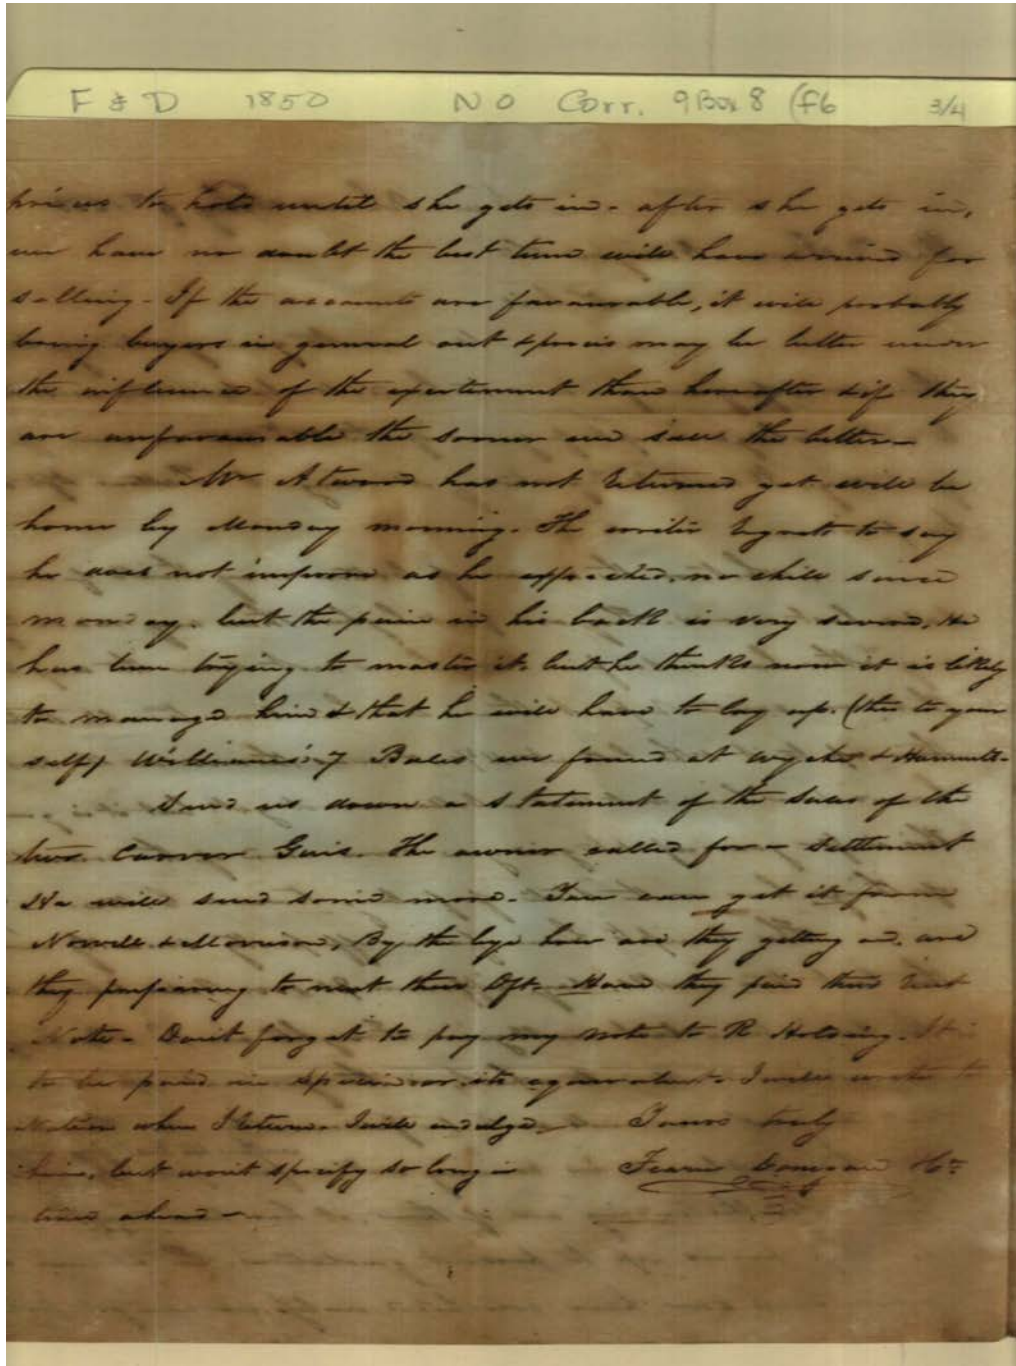 F & D 1850 NO Corr. 9Box 8 (f6 3/4
to hold until she gets in. after she gets in,
we have no doubt the best time will have arrived for
selling - If the accounts are favourable, it will probably
bring buyers in general out & prices may be better under
the influence of the excitement than hereafter & if they
are unfavourable the sooner we sell the better -
Mr Atwood has not returned yet will be
home by Monday morning. The writer regrets to say
he does not improve as he expected, no chill since
monday. but the pain in his back is very severe, He
has been trying to master it but he thinks now it is likely
to manage him & that he will have to lay up. (this to your
self) Williams' 7 Bales we found at Wyche &
Send us down a statement of the sales of the
two Carver Gins. The owner called for a settlement
He will send some more. You can get it from
Norvell & Morrison, By the bye how are they getting on. are
they preparing to meet their Dft. Have they paid their rent
Note - Don't forget to pay my note to R Holding. It
to be paid in specie or its equivalent. I will write to
when I return. I will indulge Yours truly
him, but wont specify so long a Fearn Donegan & Co
time ahead -